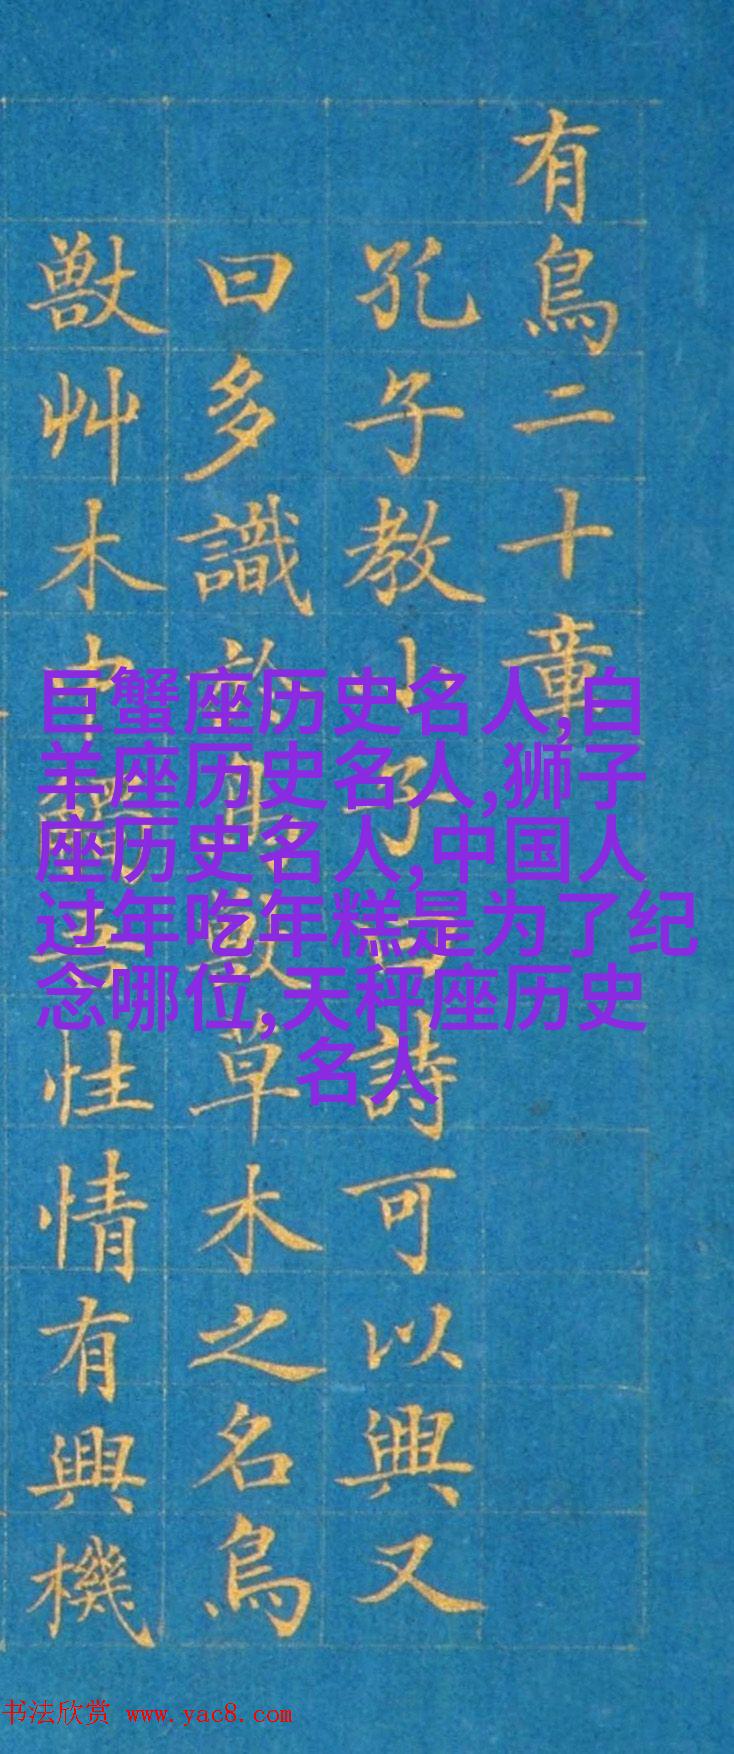 有鳥二十章
孔子教小子詩可以興又
曰多識於鳥獸草木之名鳥
獸艸木中性情有興機
巨蟹座历史名人,白
羊座历史名人,狮子
座历史名人,中国人
过年吃年糕是为了纪
念哪位,天秤座历史
名人
书法欣赏 www.yac8.com